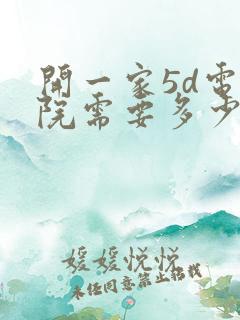 開一家5d電
院需要多少
媛媛悦悦
未经同意禁止搭载